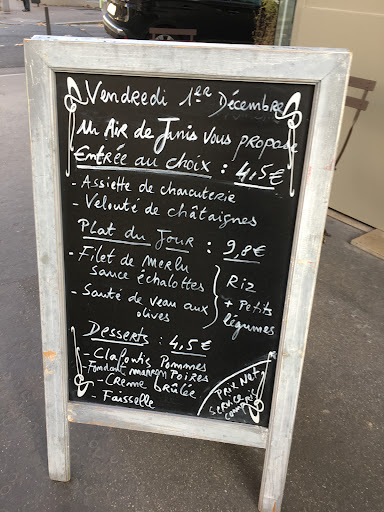 Vendredi 1er Décembre
Un Air de Janis Vous propose
Entrée au choix : 4,5€
- Assiette de charcuterie
- Velouté de châtaignes
Plat du Jour : 9,8€
- Filet de Merlu
sauce échalottes
- Sauté de veau aux
olives
Riz
+ Petits
légumes
Desserts : 4,5€
- Clafoutis Pommes
- Fondant marron Poires
- Creme brûlée
- Faisselle
Prix Net
Service
compris